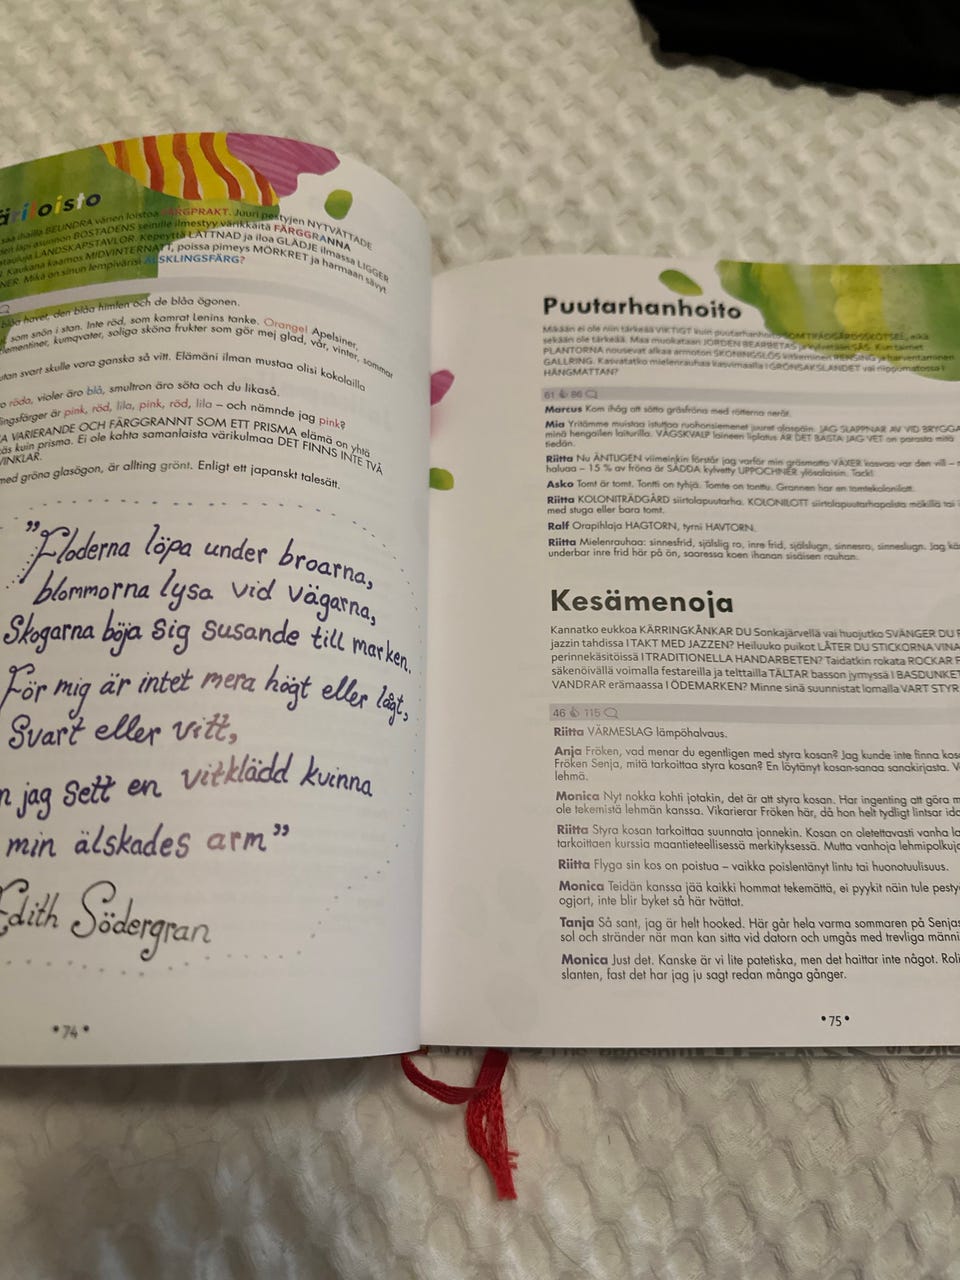 äriloisto
saa ihailla BEUNDRA värien loistoa FÄRGPRAKT. Juuri pestyjen NYTVÄTTADE
sen läpi asunnon BOSTADENS seinille ilmestyy värikkäitä FÄRGGRANNA
tauluja LANDSKAPSTAVLOR. Kepeyttä LÄTTNAD ja iloa GLÄDJE ilmassa LIGGER
. Kaukana kaamos MIDVINTERNATT, poissa pimeys MÖRKRET ja harmaan sävyt
NER. Mikä on sinun lempivärisi ÄLSKLINGSFÄRG?
blåa havet, den blåa himlen och de blåa ögonen.
som snön i stan. Inte röd, som kamrat Lenins tanke. Orange! Apelsiner,
lementiner, kumqvater, soliga sköna frukter som gör mej glad, vår, vinter, sommar
utan svart skulle vara ganska så vitt. Elämäni ilman mustaa olisi kokolailla
ro röda, violer äro blå, smultron äro söta och du likaså.
lingsfärger är pink, röd, lila, pink, röd, lila – och nämnde jag pink?
A VARIERANDE OCH FÄRGGRANNT SOM ETT PRISMA elämä on yhtä
äs kuin prisma. Ei ole kahta samanlaista värikulmaa DET FINNS INTE TVÅ
VINKLAR.
med gröna glasögon, är allting grönt. Enligt ett japanskt talesätt.
”Floderna löpa under broarna,
blommorna lysa vid vägarna,
Skogarna böja sig susande till marken.
För mig är intet mera högt eller lågt,
Svart eller vitt,
n jag sett en vitklädd kvinna
min älskades arm”
Edith Södergran
•74•
Puutarhanhoito
Mikään ei ole niin tärkeää VIKTIGT kuin puutarhanhoito SOM TRÄDGÅRDSSKÖTSEL, eikä
sekään ole tärkeää. Maa muokataan JORDEN BEARBETAS ja kylvetään SÅS. Kun taimet
PLANTORNA nousevat alkaa armoton SKONINGSLÖS kitkeminen RENSING ja harventaminen
GALLRING. Kasvatatko mielenrauhaa kasvimaalla I GRÖNSAKSLANDET vai riippumatossa I
HÄNGMATTAN?
61 86
Marcus Kom ihåg att sätta gräsfröna med rötterna neråt.
Mia Yritämme muistaa istuttaa ruohonsiemenet juuret alaspäin. JAG SLAPPNAR AV VID BRYGGA
minä hengailen laiturilla. VÅGSKVALP laineen liplatus ÄR DET BÄSTA JAG VET on parasta mitä
tiedän.
Riitta Nu ÄNTLIGEN viimeinkin förstår jag varför min gräsmatta VÄXER kasvaa var den vill –
haluaa – 15 % av fröna är SÅDDA kylvetty UPPOCHNER ylösalaisin. Tack!
Asko Tomt är tomt. Tontti on tyhjä. Tomte on tonttu. Grannen har en tomtekolonilott.
Riitta KOLONITRÄDGÅRD siirtolapuutarha. KOLONILOTT siirtolapuutarhapalsta mökillä tai
med stuga eller bara tomt.
Ralf Orapihlaja HAGTORN, tyrni HAVTORN.
Riitta Mielenrauhaa: sinnesfrid, själslig ro, inre frid, själslugn, sinnesro, sinneslugn. Jag
underbar inre frid här på ön, saaressa koen ihanan sisäisen rauhan.
Kesämenoja
Kannatko eukkoa KÄRRINGKÅNKAR DU Sonkajärvellä vai huojutko SVÄNGER DU
jazzin tahdissa I TAKT MED JAZZEN? Heiluuko puikot LÅTER DU STICKORNA VINA
perinnekäsitöissä I TRADITIONELLA HANDARBETEN? Taidatkin rokata ROCKAR
säkenöivällä voimalla festareilla ja telttailla TÄLTAR basson jymyssä I BASDUNKET
VANDRAR erämaassa I ÖDEMARKEN? Minne sinä suunnistat lomalla VART STYR
46 115
Riitta VÄRMESLAG lämpöhalvaus.
Anja Fröken, vad menar du egentligen med styra kosan? Jag kunde inte finna
Fröken Senja, mitä tarkoittaa styra kosan? En löytänyt kosan-sanaa sanakirjasta.
lehmä.
Monica Nyt nokka kohti jotakin, det är att styra kosan. Har ingenting att göra
ole tekemistä lehmän kanssa. Vikarierar Fröken här, då hon helt tydligt lintsar
Riitta Styra kosan tarkoittaa suunnata jonnekin. Kosan on oletettavasti vanha
tarkoittaen kurssia maantieteellisessä merkityksessä. Mutta vanhoja lehmipolkuja
Riitta Flyga sin kos on poistua – vaikka poislentänyt lintu tai huonotuulisuus.
Monica Teidän kanssa jää kaikki hommat tekemättä, ei pyykit näin tule
ogjort, inte blir byket så här tvättat.
Tanja Så sant, jag är helt hooked. Här går hela varma sommaren på Senjas
sol och stränder när man kan sitta vid datorn och umgås med trevliga
Monica Just det. Kanske är vi lite patetiska, men det haittar inte något.
slanten, fast det har jag ju sagt redan många gånger.
•75•